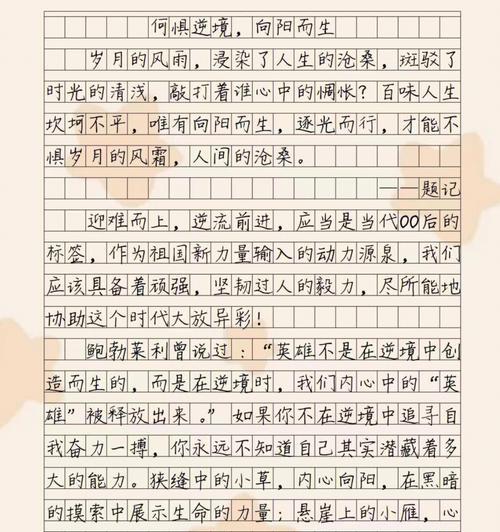 何惧逆境，向阳而生
岁月的风雨，浸染了人生的沧桑，斑驳了
时光的清浅，敲打着谁心中的惆怅？百味人生
坎坷不平，唯有向阳而生，逐光而行，才能不
惧岁月的风霜，人间的沧桑。
——题记
迎难而上，逆流前进，应当是当代00后的
标签，作为祖国新力量输入的动力源泉，我们
应该具备着顽强，坚韧过人的毅力，尽所能地
协助这个时代大放异彩！
鲍勃莱利曾说过：“英雄不是在逆境中创
造而生的，而是在逆境时，我们内心中的“英
雄”被释放出来。”如果你不在逆境中追寻自
我奋力一搏，你永远不知道自己其实潜藏着多
大的能力。狭缝中的小草，内心向阳，在黑暗
的摸索中展示生命的力量；悬崖上的小雁，心